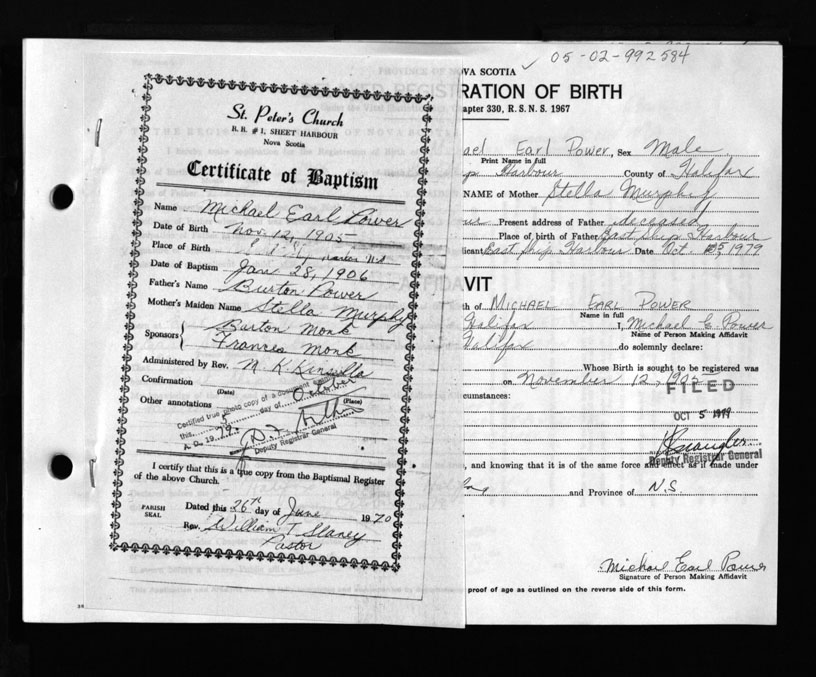 05-02-992584
St. Peter's Church
R. R. #1, SHEET HARBOUR
Nova Scotia
Certificate of Baptism
Name Michael Earl Power
Date of Birth Nov 12, 1905
Place of Birth
Date of Baptism Jan 28, 1906
Father's Name Burton Power
Mother's Maiden Name Stella Murphy
Sponsors { Burton Monk
Frances Monk
Administered by Rev. M. K. Kinsella
Confirmation
(Date) (Place)
Other annotations
Certified true photo copy of a document
this 5 day of October
A. D. 19 79.
Deputy Registrar General
I certify that this is a true copy from the Baptismal Register
of the above Church.
PARISH
SEAL
Dated this 26th day of June 1970
Rev. William T Slaney
Pastor
VA SCOTIA
RATION OF BIRTH
apter 330, R. S. N. S. 1967
ael Earl Power, Sex Male
Print Name in full
p Harbour County of Halifax
NAME of Mother Stella Murphy
us Present address of Father deceased
Place of birth of Father East Ship Harbour
licant East Ship Harbour Date Oct. 5, 1979
VIT
th of MICHAEL EARL POWER
Name in full
Halifax I, Michael E. Power
Name of Person Making Affidavit
Halifax do solemnly declare:
Whose Birth is sought to be registered was
on November 12, 1905
FILED
cumstances:
OCT 5 1979
Deputy Registrar General
, and knowing that it is of the same force and effect as if made under
and Province of N.S.
Michael Earl Power
Signature of Person Making Affidavit
proof of age as outlined on the reverse side of this form.